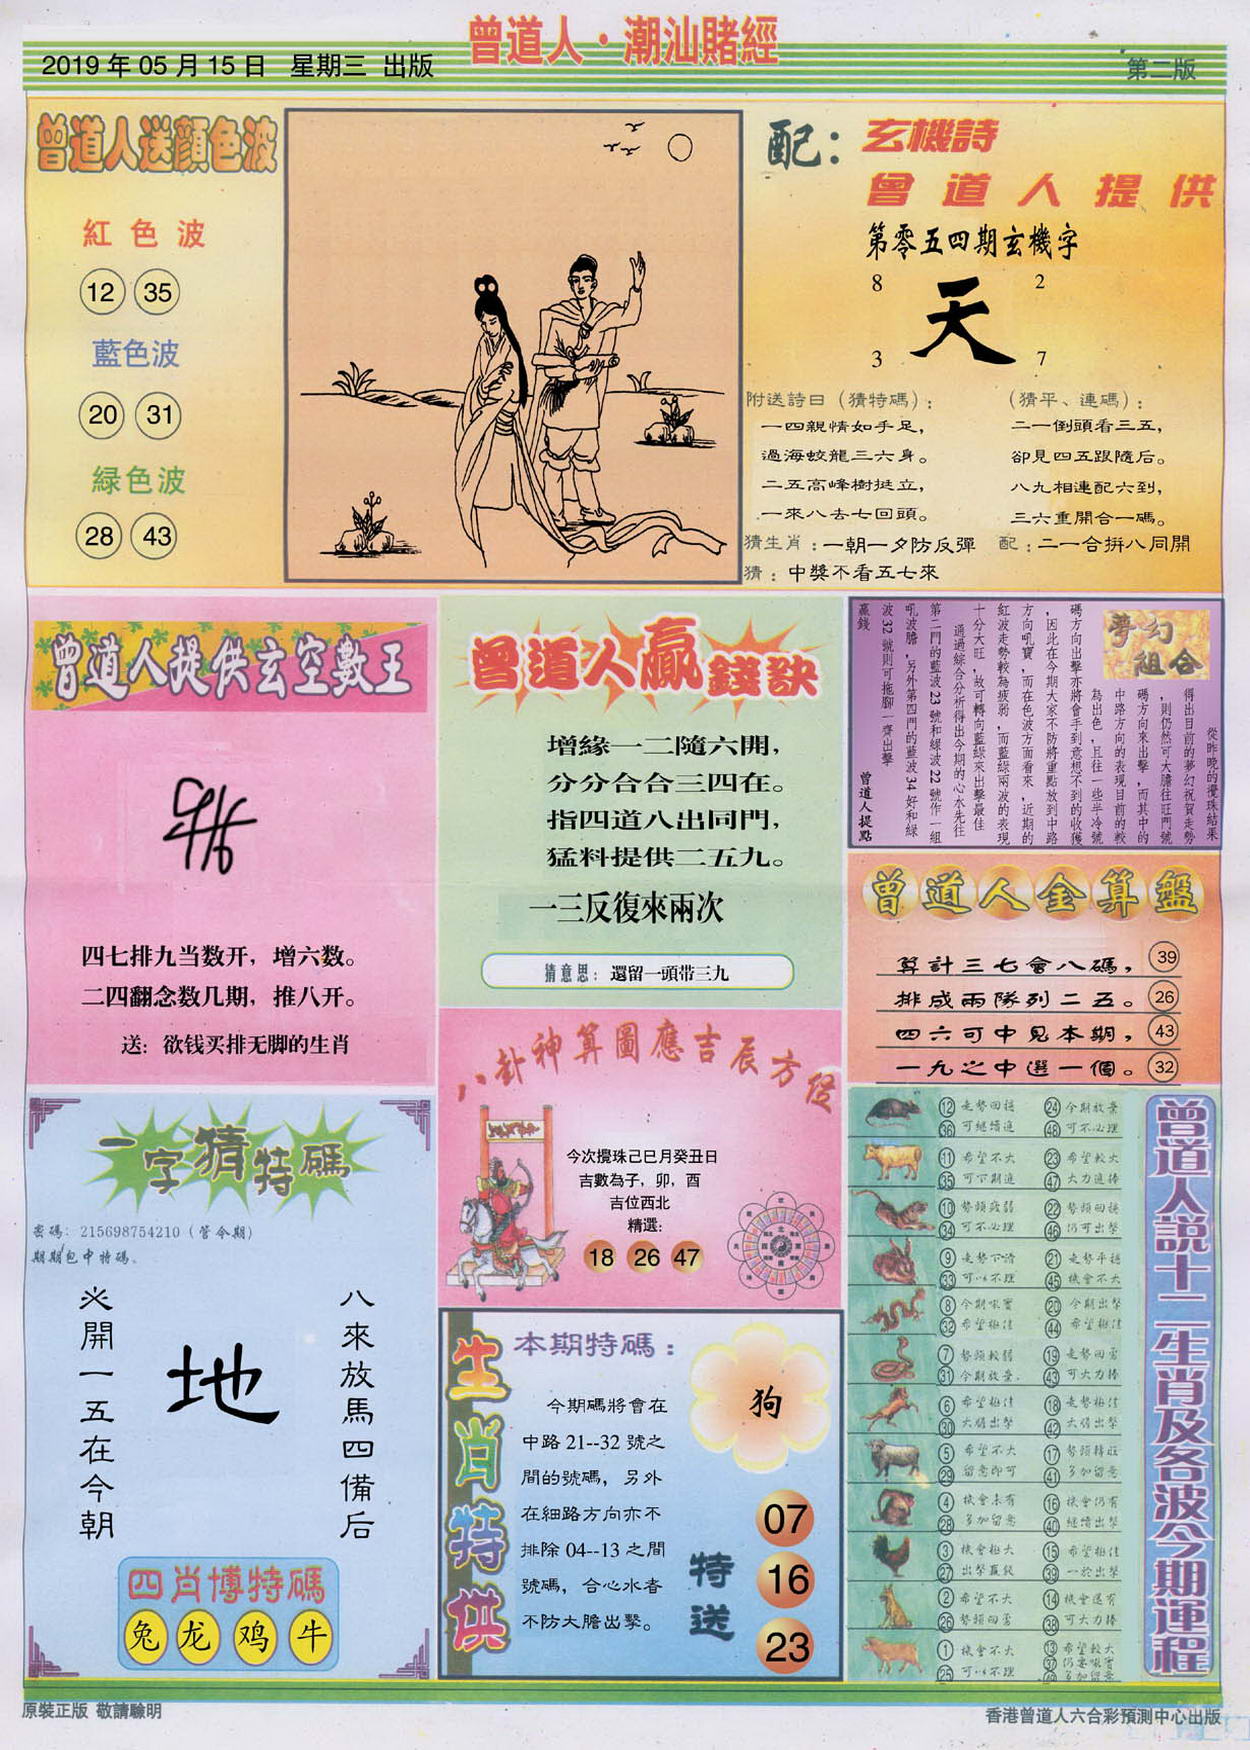 曾道人·潮汕賭經
2019年05月15日 星期三 出版
第二版
曾道人送顔色波
紅色波
12 35
藍色波
20 31
緑色波
28 43
配：玄機詩
曾道人提供
第零五四期玄機字
8 2
天
3 7
附送詩曰（猜特碼）：
一四親情如手足，
過海蛟龍三六身。
二五高峰樹挺立，
一來八去七回頭。
（猜平、連碼）：
二一倒頭看三五，
卻見四五跟隨后。
八九相連配六到，
三六重開合一碼。
猜生肖：一朝一夕防反彈 配：二一合拼八同開
猜：中獎不看五七來
曾道人提供玄空數王
四七排九当数开，增六数。
二四翻念数几期，推八开。
送：欲钱买排无脚的生肖
曾道人贏錢訣
增緣一二隨六開，
分分合合三四在。
指四道八出同門，
猛料提供二五九。
一三反復來兩次
猜意思：還留一頭带三九
夢幻組合
從昨晚的攪珠結果
得出目前的夢幻祝賀走勢
，則仍然可大膽往旺門號
碼方向來出擊，而其中的
中路方向的表現目前的較
為出色，且往一些半冷號
碼方向出擊亦將會手到意想不到的收獲
，因此在今期大家不防將重點放到中路
方向吼寶，而在色波方面看來，近期的
紅波走勢較為疲弱，而藍綠兩波的表現
十分大旺，故可轉向藍綠來出擊最佳
通過綜合分析得出今期的心水先往
第二門的藍波23號和綠波22號作一組
吼波膽，另外第四門的藍波34好和綠
波32號則可拖腳一齊出擊
贏錢 曾道人提點
曾道人金算盤
算計三七會八碼， 39
排成兩隊列二五。 26
四六可中見本期， 43
一九之中選一個。 32
八卦神算圖應吉辰方位
今次攪珠己巳月癸丑日
吉數為子，卯，酉
吉位西北
精選：
18 26 47
一字猜特碼
密碼：215698754210（管令期）
期期包中特碼。
八來放馬四備后
地
米開一五在今朝
四肖博特碼
兔 龙 鸡 牛
生肖特供
本期特碼：
狗
今期碼將會在
中路21--32號之
間的號碼，另外
在細路方向亦不
排除04--13之間
號碼，合心水者
不防大膽出擊。
特送
07
16
23
曾道人説十二生肖及各波今期運程
12 走勢回穩 24 今期放棄
36 可繼續追 48 可不必理
11 希望不大 23 希望較大
35 可下期追 47 大力追捧
10 勢頭疲弱 22 勢頭回穩
34 可不必理 46 仍可出擊
9 走勢下滑 21 走勢平穩
33 可以不理 45 機會不大
8 今期吼寶 20 今期出擊
32 希望極佳 44 希望極佳
7 勢頭較弱 19 走勢回勇
31 今期放棄 43 可大力捧
6 希望極佳 18 走勢極佳
30 大膽出擊 42 大膽出擊
5 希望不大 17 勢頭轉旺
29 留意即可 41 多加留意
4 機會未有 16 機會仍有
28 多加留意 40 繼續出擊
3 機會極大 15 希望極佳
27 出擊贏錢 39 一於出擊
2 希望不大 14 機會還有
26 勢頭回勇 38 可大力捧
1 機會不大 13 希望較大
25 可以不理 37 仍要吼寶
49 多加留意
原裝正版 敬請驗明
香港曾道人六合彩預測中心出版